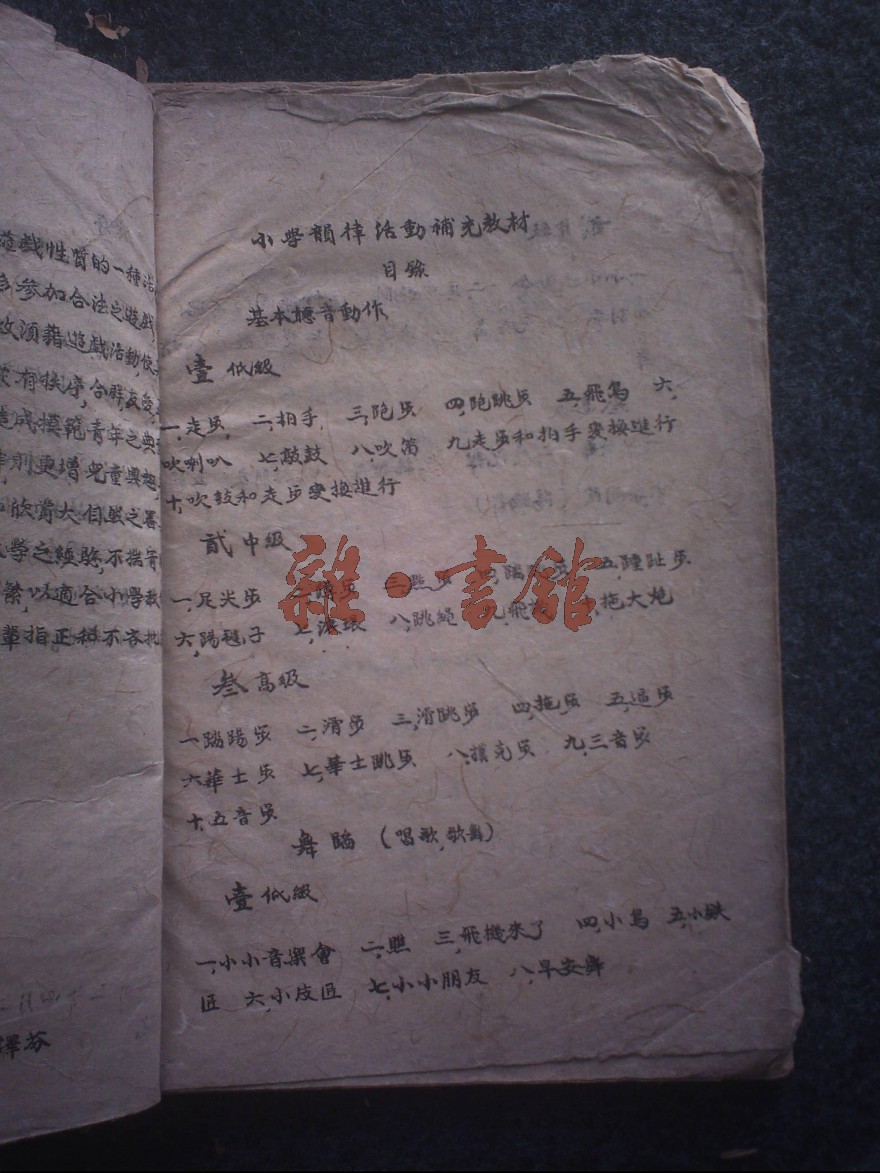 小學韻律活動補充教材
目錄
基本聽音動作
壹 低級
一,走步, 二,拍手, 三,跑步 四,跑跳步 五,飛鳥 六,
吹喇叭 七,敲鼓 八,吹笛 九走步和拍手變換進行
十,吹鼓和走步變換進行
貳中級
一,足尖步 三點步 五,踵趾步
六,踢毽子 七,滾環 八,跳繩 九,飛 拖大炮
叁高級
一踏踢步 二,滑步 三,滑跳步 四,拖步 五,逗步
六華士步 七,華士跳步 八,撲克步 九,三音步
十,五音步
舞蹈 (唱歌,歌舞)
壹低級
一,小小音樂會 二,熊 三,飛機來了 四,小鳥 五,小鉄
匠 六,小皮匠 七,小小朋友 八,早安舞
遊戲性質的一種活
參加合法之遊戲
須藉遊戲活動使
有秩序,合群友愛
成模範青年之典
則更增兒童興趣
欣賞大自然之
學之經驗,不揣
繁,以適合小學教
輩指正科不吝
雜·書館